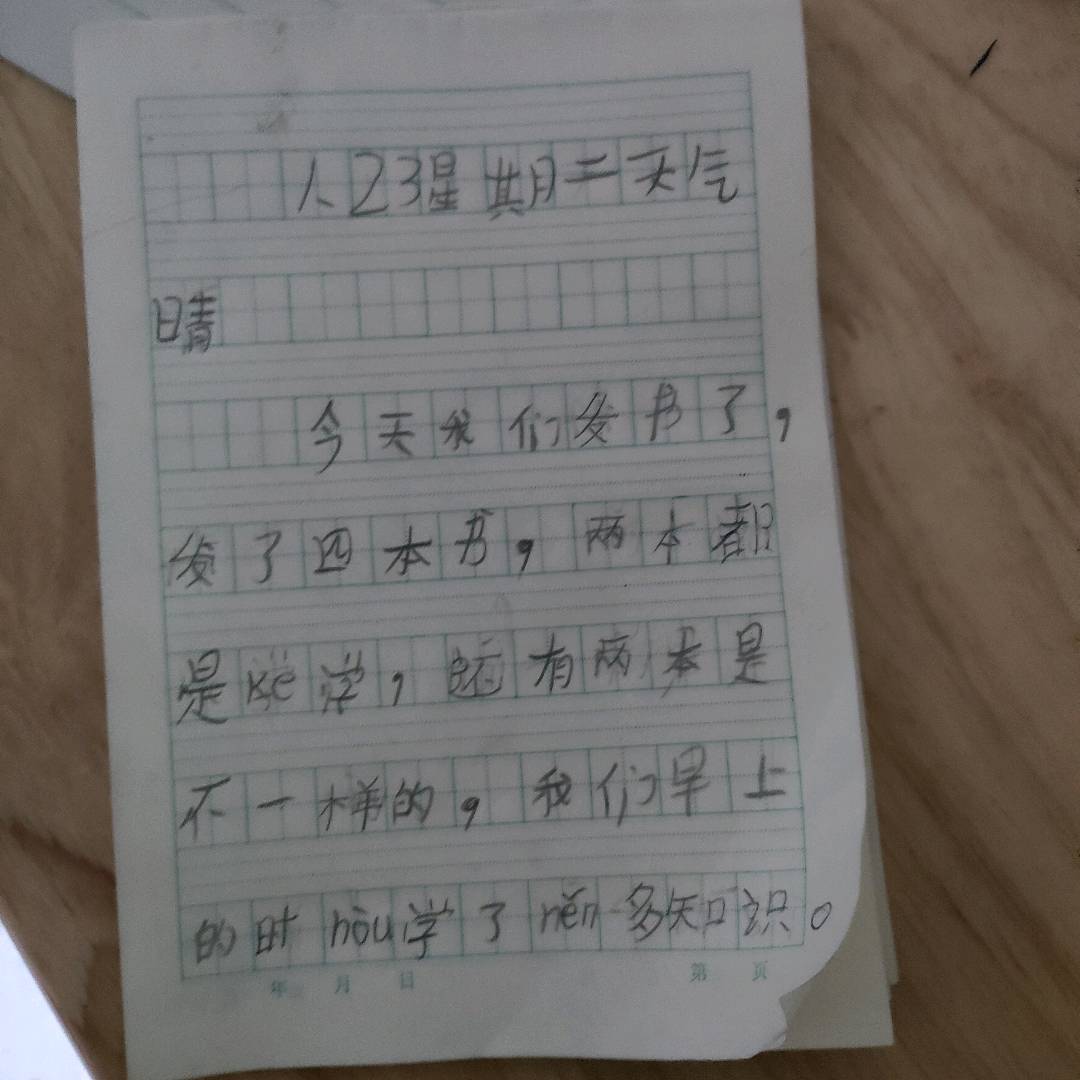 1、23星期二天气
晴
今天我们发书了，
发了四本书，两本都
是kē学，还有两本是
不一样的，我们早上
的时hòu学了hěn多知识。
年 月 日 第 页